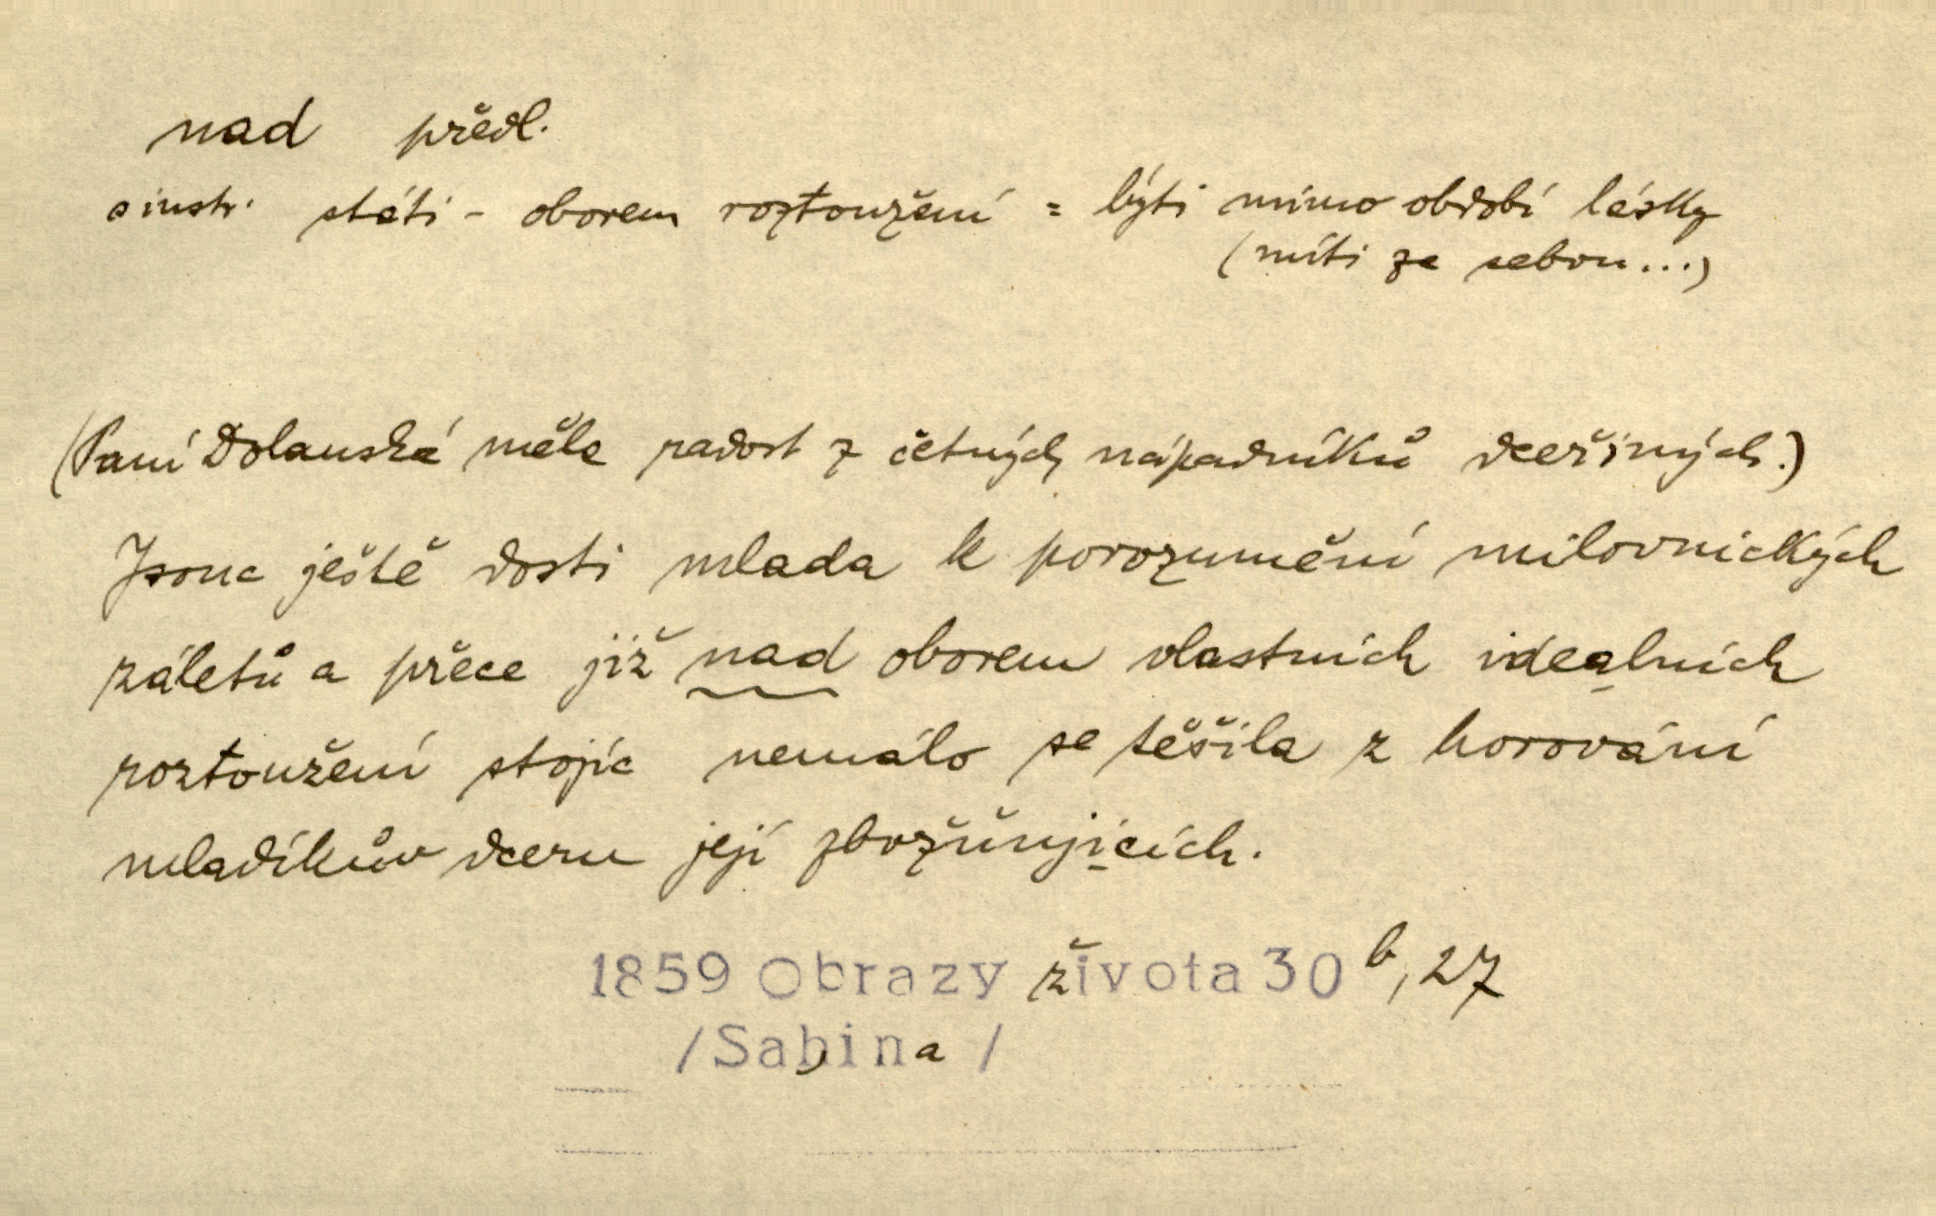 nad předl.
s instr. státi - oborem roztoužení = býti mimo období lásky
(míti za sebou...)
(Paní Dolanská měla radost z četných nápadníků dceřiných.)
Jsouc ještě dosti mlada k porozumění milovnických
záletů a přece již nad oborem vlastních idealních
roztoužení stojíc nemálo se těšila z horování
mladíkův dceru její zbožňujících.
1859 Obrazy života 30 b, 27
/Sabina /